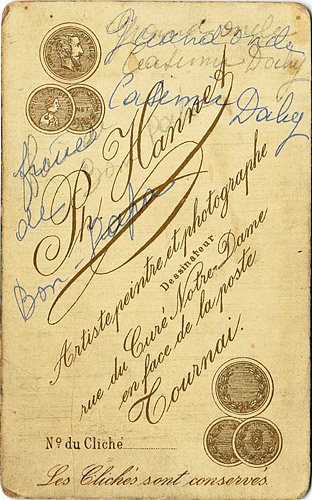 Grand oncle
Casimir Daby
frère
de
Bon-papa
Ph. Hannet
Artiste peintre et photographe
Dessinateur
rue du Curé Notre-Dame
en face de la poste
Tournai.
Nº du Cliché
Les Clichés sont conservés